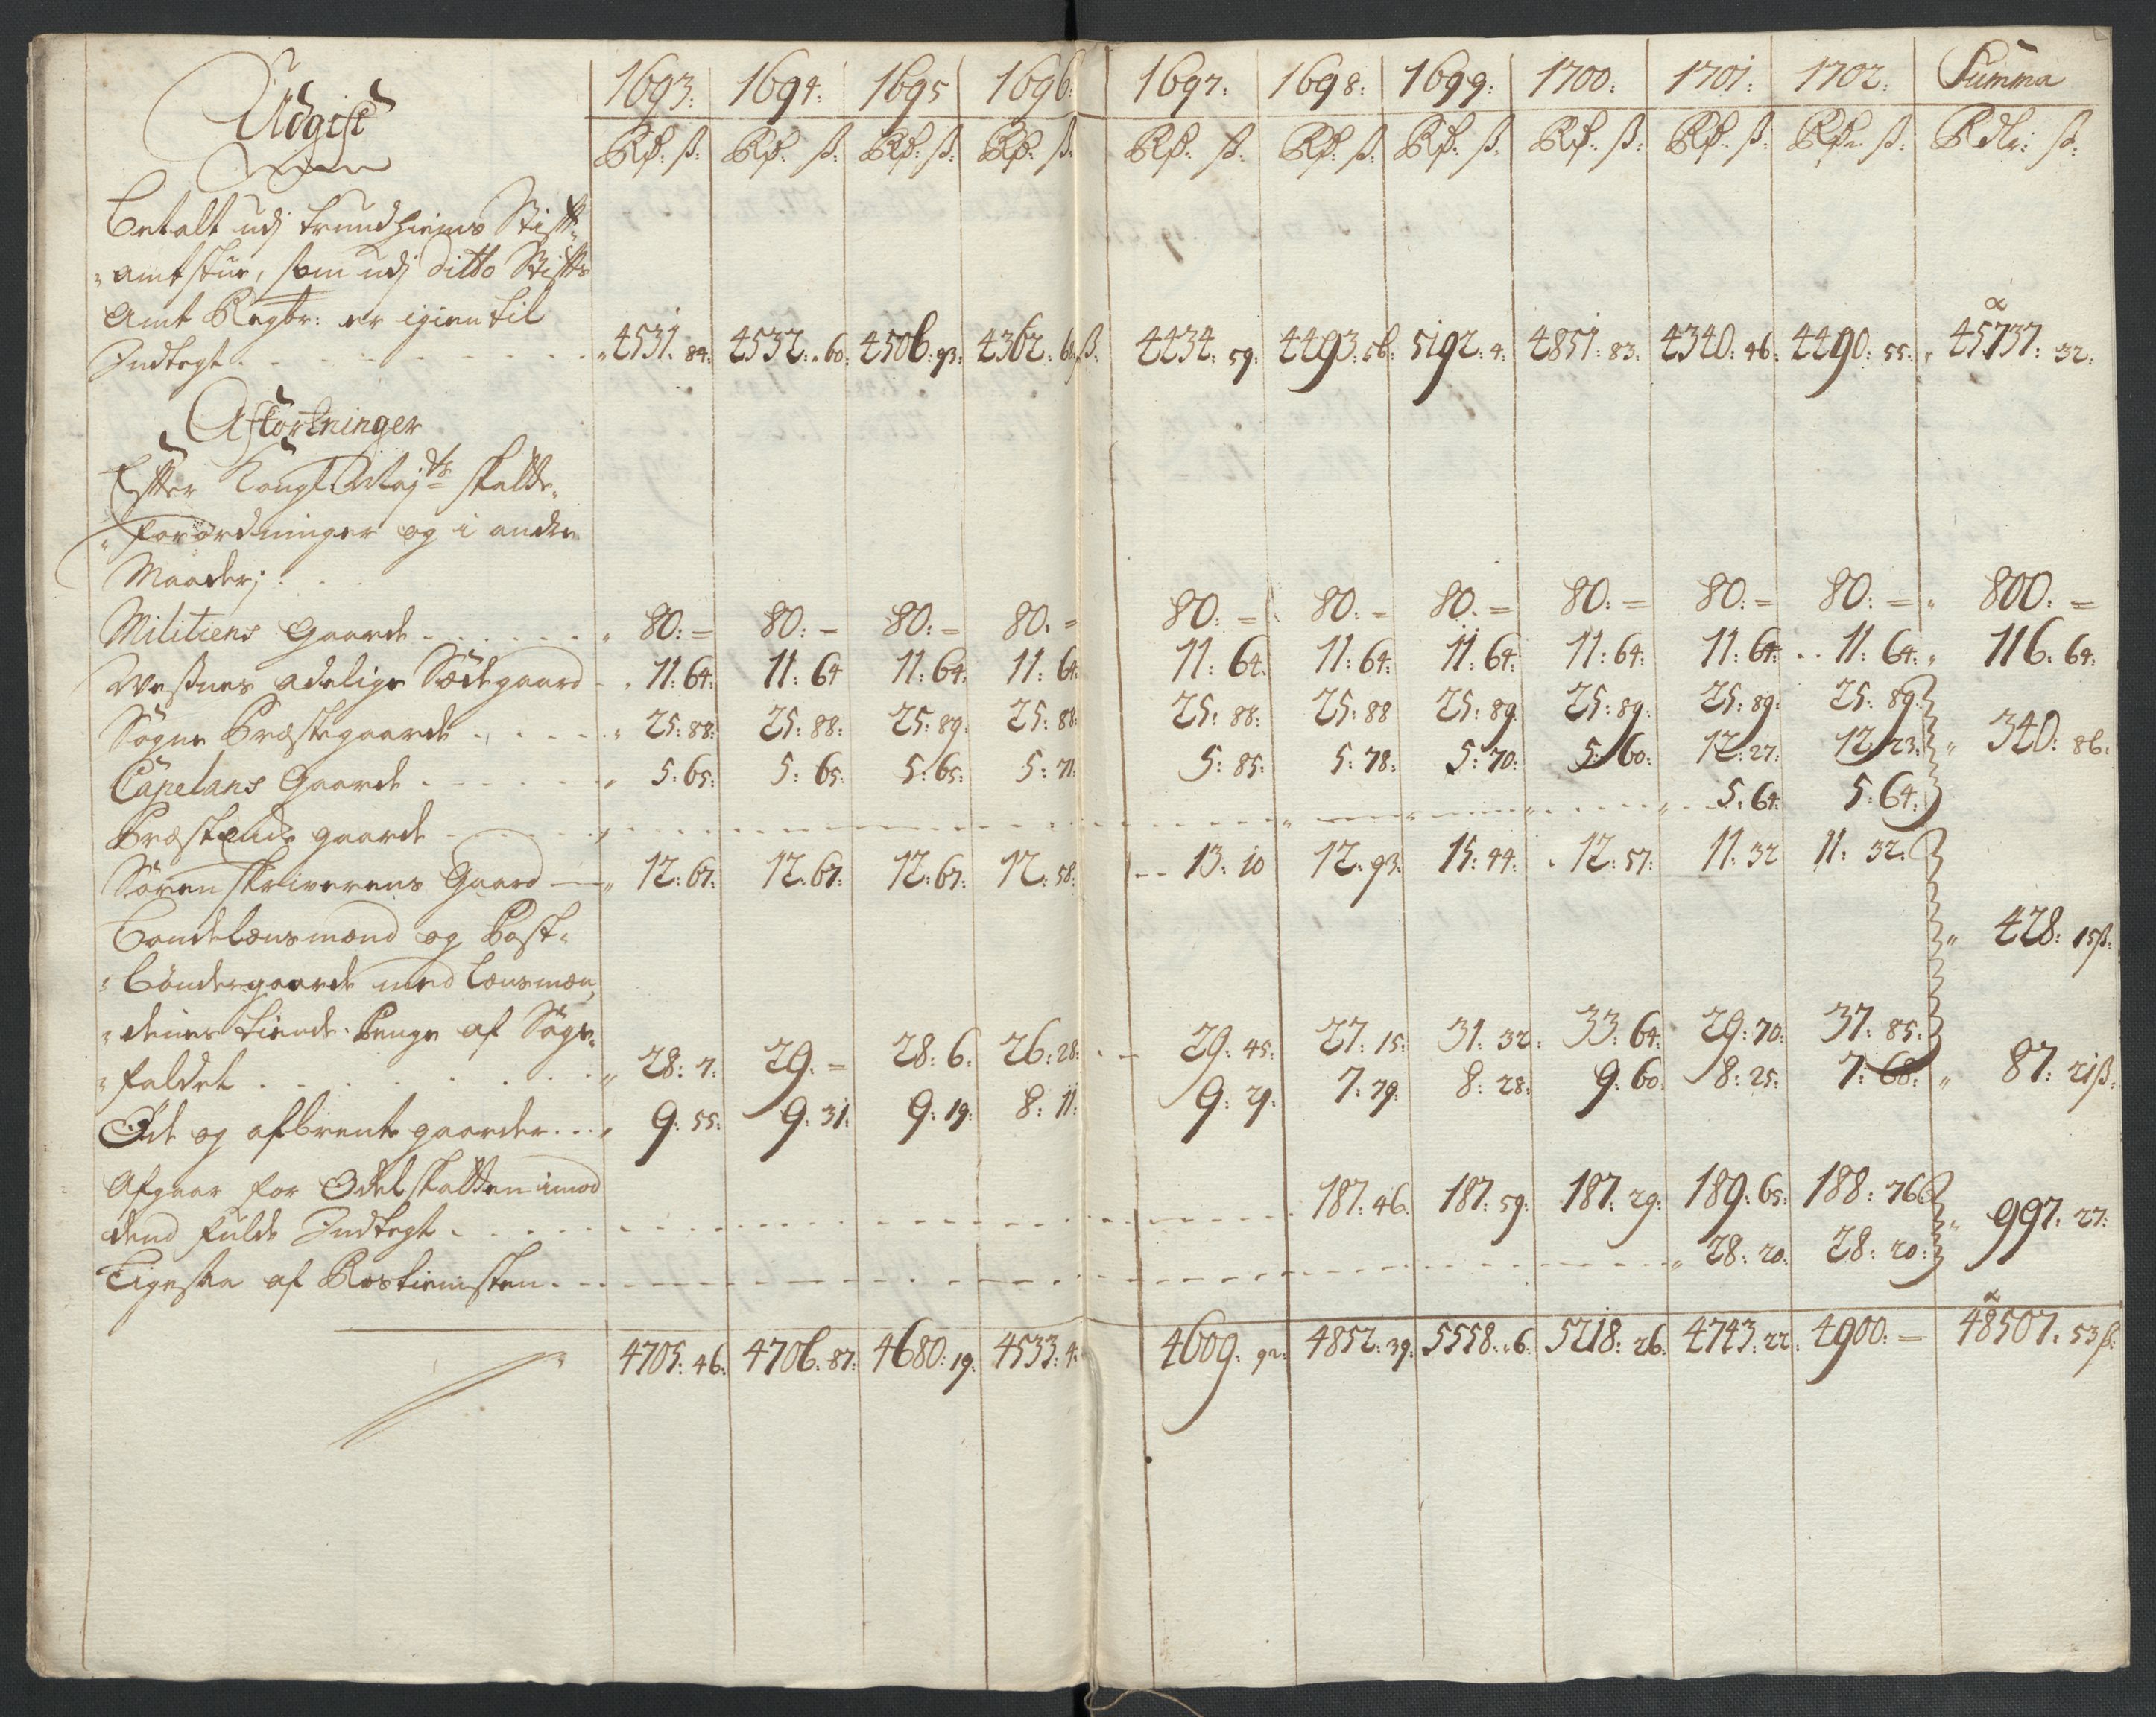 Udgift | 1693: | 1694: | 1695 | 1696: | 1697: | 1698: | 1699: | 1700: | 1701: | 1702: | Summa
Rd: ß: | Rd: ß: | Rd: ß: | Rd: ß: | Rd: ß: | Rd: ß: | Rd: ß: | Rd: ß: | Rd: ß: | Rd: ß: | Rdlr: ß:
Betalt udj Trundhiems Stift-
amtstue, som udj ditto Stifts
Amt Regbr: er igien til
Indtegt | 4531. 84: | 4532: 60: | 4506: 93: | 4362: 68 ß: | 4434: 59: | 4493: 56: | 5192: 4: | 4851: 83: | 4340: 46: | 4490: 55: | 45737: 32:
Afkortninger
Efter Kongl: Majts Skatte-
forordninger og i andre
Maader;
Militiens Gaarde | 80: = | 80: = | 80: = | 80: = | 80: = | 80: = | 80: = | 80: = | 80: = | 80: = | 800: =
Weßnes adelige Sædegaard | 11: 64: | 11: 64 | 11: 64: | 11: 64: | 11: 64: | 11: 64: | 11: 64: | 11: 64: | 11: 64: | 11: 64: | 116: 64:
Sogne Præstegaarde | 25: 88: | 25: 88: | 25: 89: | 25: 88: | 25: 88: | 25: 88 | 25: 89 | 25: 89: | 25: 89: | 25: 89:
Capelans Gaarde | 5: 65: | 5: 65: | 5: 65: | 5: 71: | 5: 85: | 5: 78: | 5: 70: | 5: 60: | 12: 27: | 12: 23: | 340: 86:
Præstends gaarde | 5: 64: | 5: 64:
Sorenskriverens Gaard | 12: 67: | 12: 67: | 12: 67: | 12: 58: | 13: 10 | 12: 93: | 15: 44: | 12: 57: | 11: 32 | 11: 32:
Bondelensmænd og Post-
bøndergaarde med Lensmæn- | 428: 15 ß:
denes tiende Penge af Sage-
faldet | 28: 7: | 29: = | 28: 6: | 26: 28: | 29: 45: | 27: 15: | 31: 32: | 33: 64: | 29: 70: | 37: 85:
Øde og afbrente gaarder | 9: 55: | 9: 31: | 9: 19: | 8: 11: | 9: 29: | 7: 79: | 8: 28: | 9: 60: | 8: 25: | 7: 68: | 87: 21 ß:
Afgaar for Odelskatten imod
dend fulde Indtegt | 187: 46: | 187: 59: | 187: 29: | 189: 65: | 188: 76: | 997: 27:
Ligesaa af Rostienisten | 28: 20: | 28: 20:
4705: 46: | 4706: 87: | 4680: 19: | 4533: 4: | 4609: 92: | 4852: 39: | 5558: 6: | 5218: 26: | 4743: 22: | 4900: = | 48507: 53 ß: